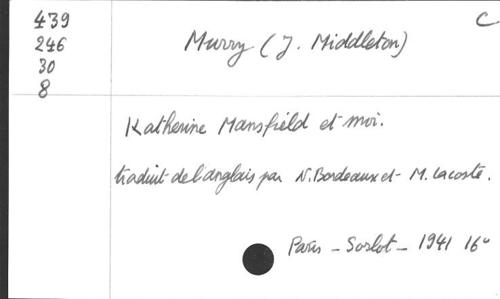 439
246
30
8
C
Murry (J. Middleton)
Katherine Mansfield et moi.
traduit de l'anglais par N. Bordeaux et M. Lacoste.
Paris - Sorlot - 1941 16°